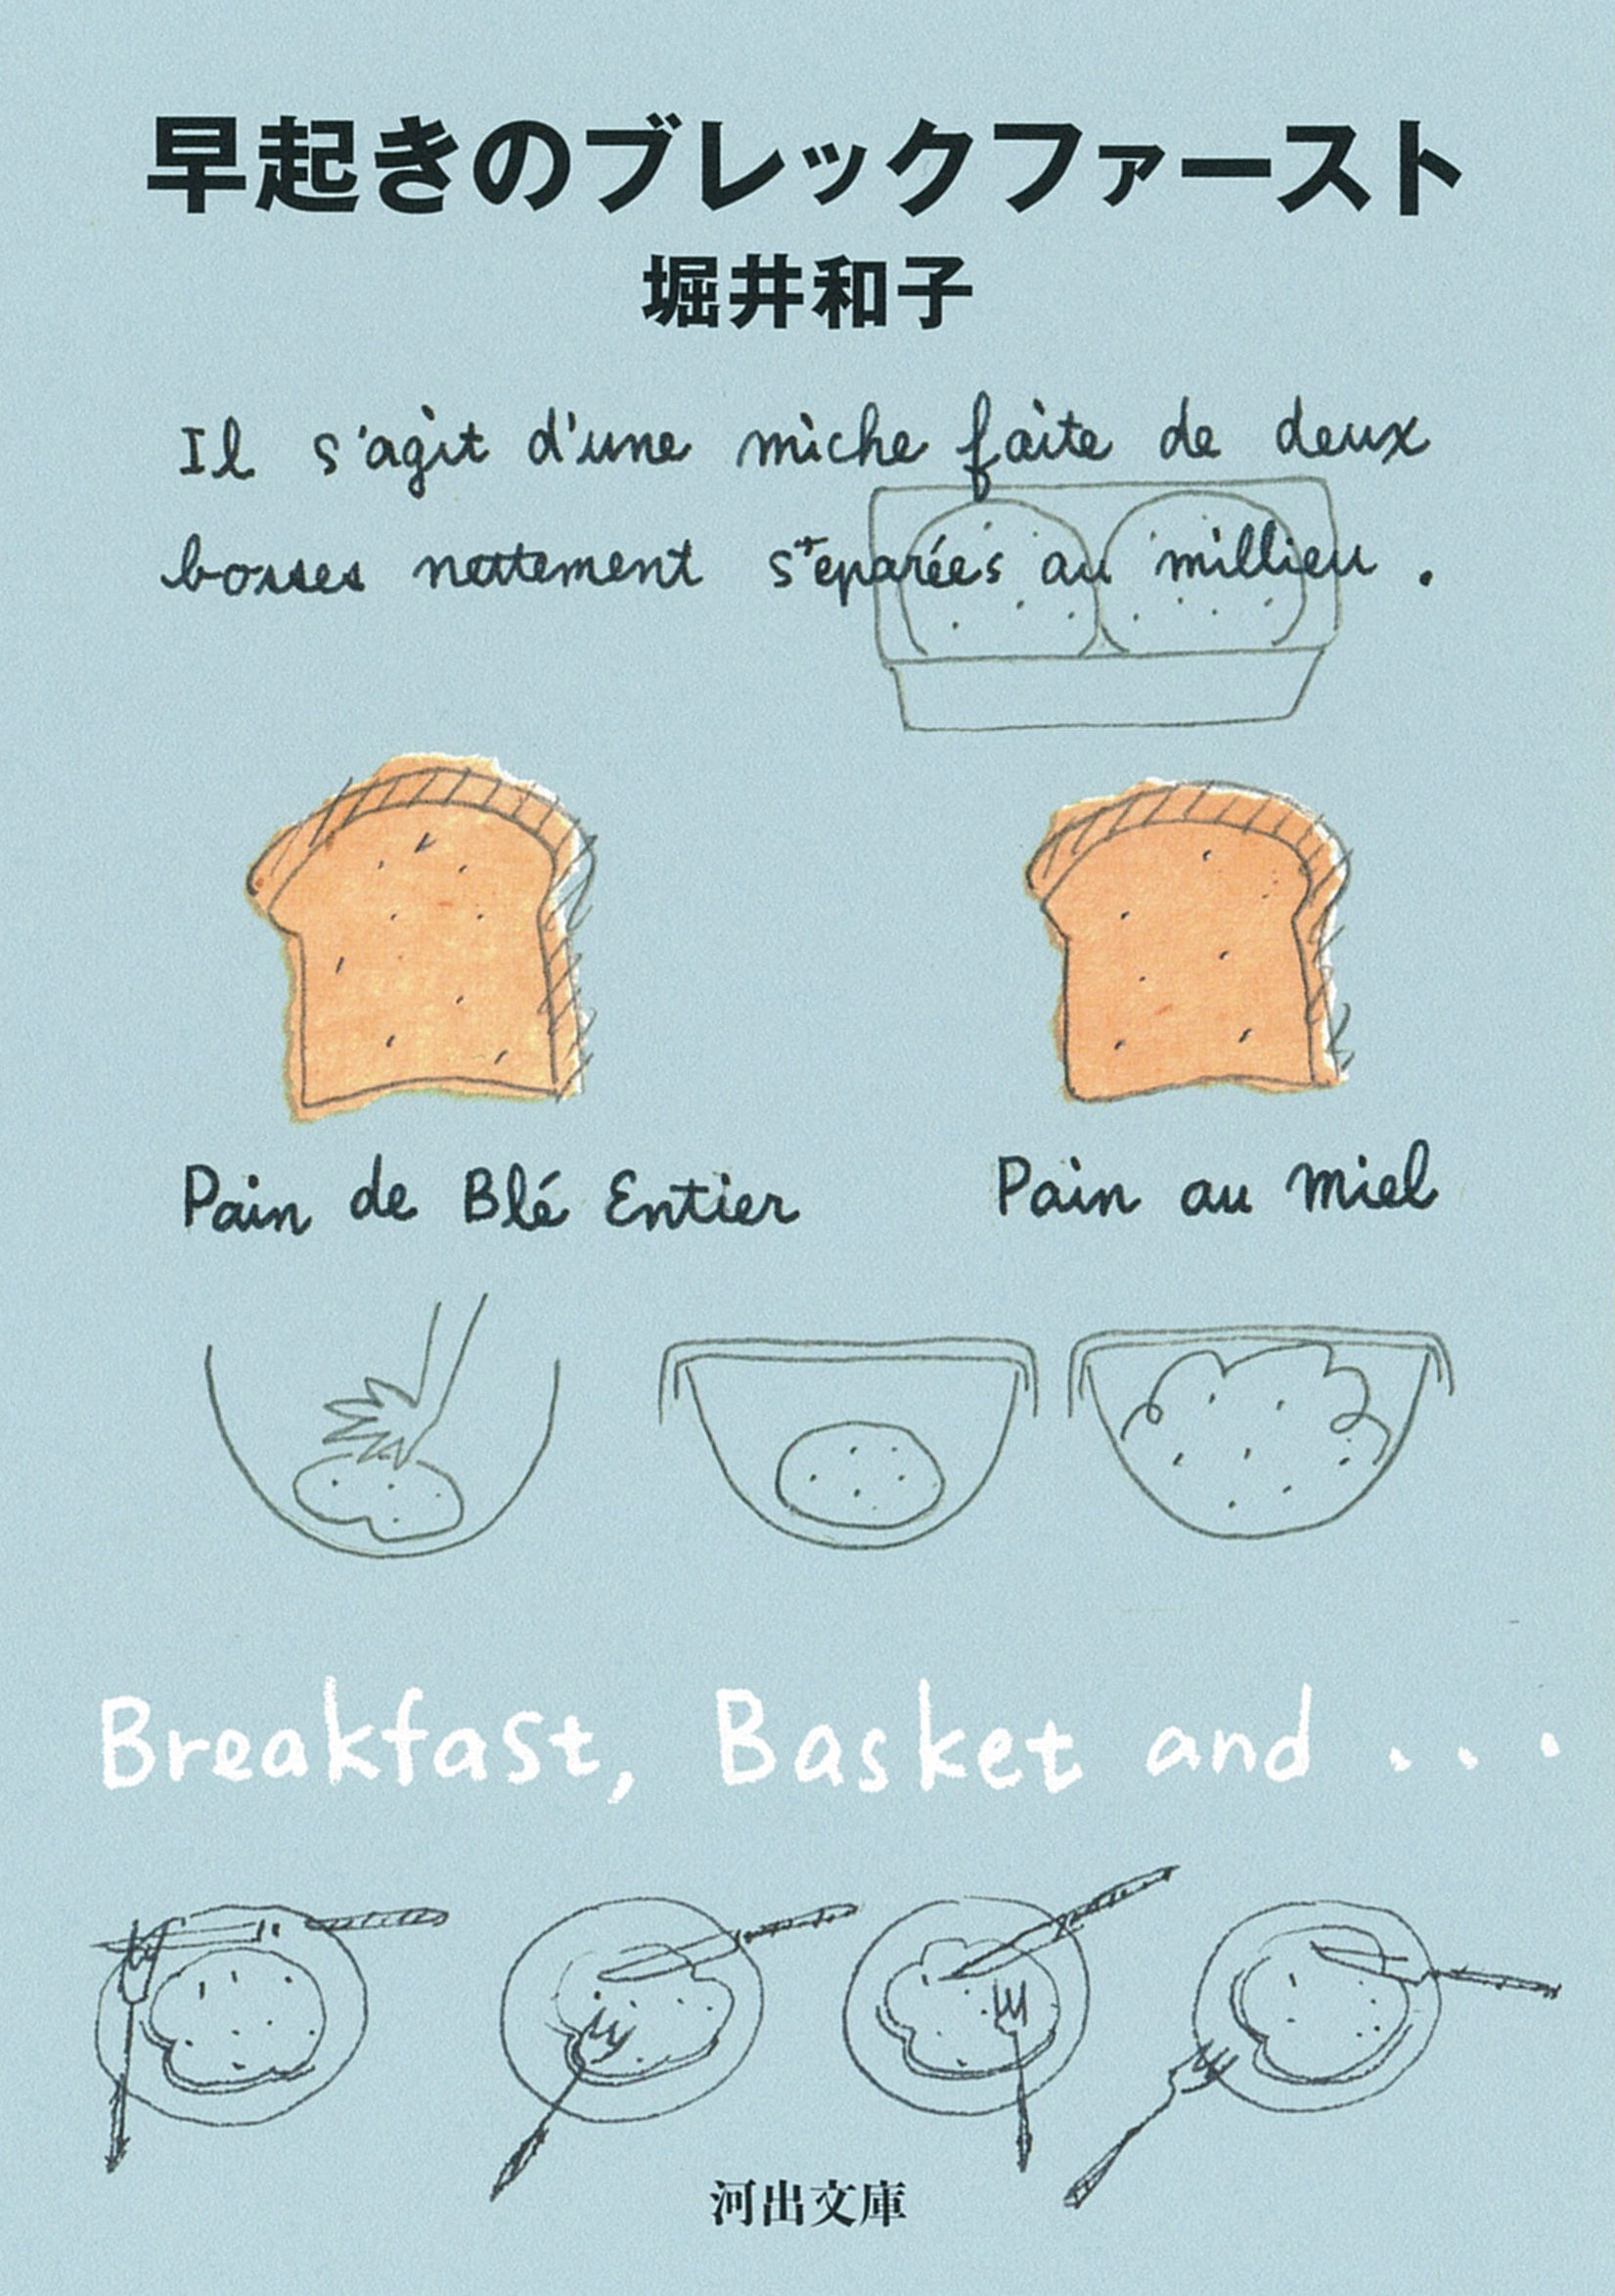 早起きのブレックファースト
堀井和子
Il s'agit d'une miche faite de deux
bosses nettement séparées au millieu .
Pain de Blé Entier
Pain au miel
Breakfast, Basket and ...
河出文庫